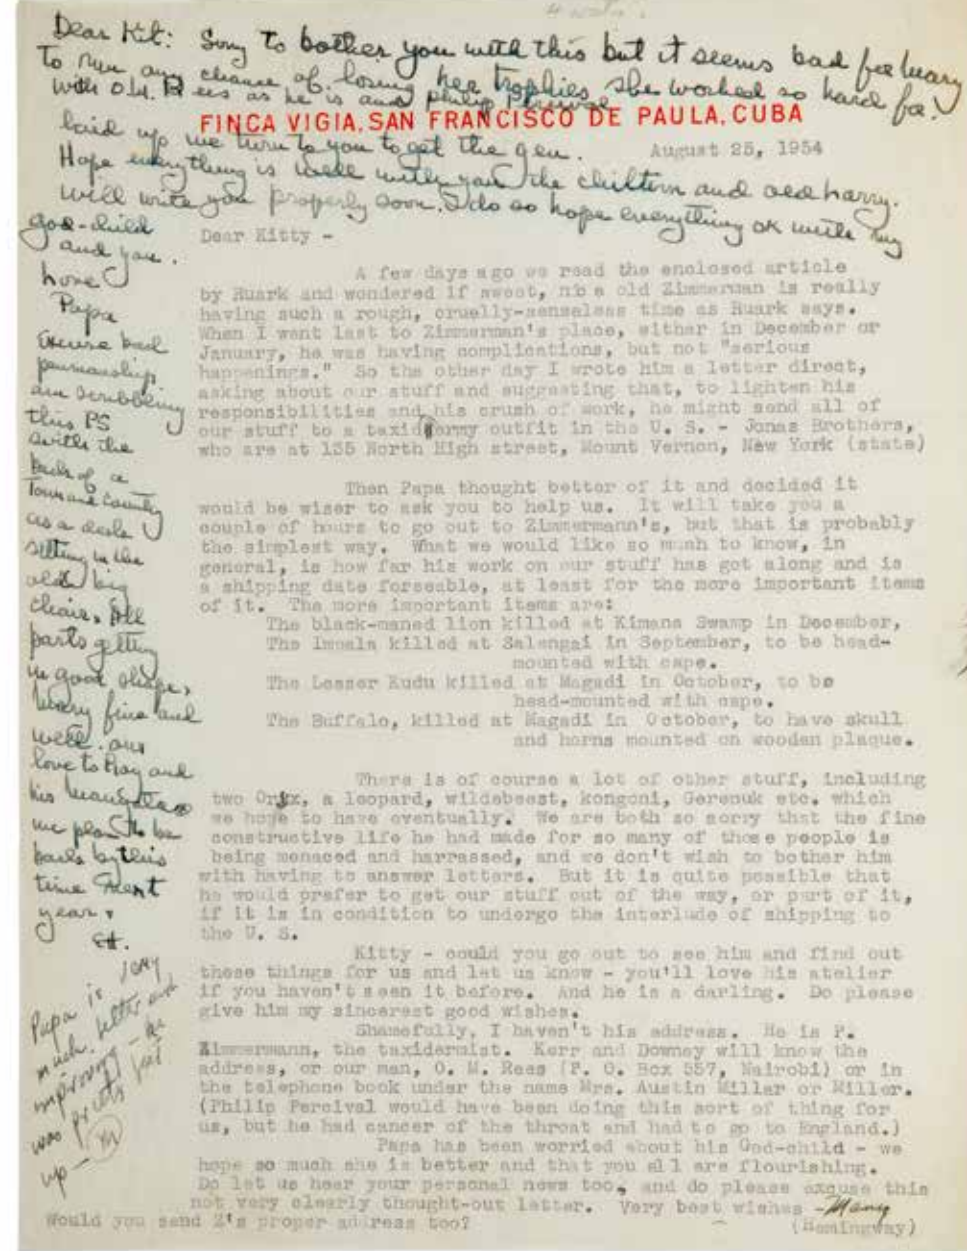 Dear Kit: Sorry to bother you with this but it seems bad for Mary
to run any chance of losing her trophies she worked so hard for.
With old. R ees as he is and Philip Percival
FINCA VIGIA, SAN FRANCISCO DE PAULA, CUBA
laid up we turn to you to get the gen.
August 25, 1954
Hope everything is well with you the children and old harry.
will write you properly soon. I do so hope everything ok with my
god-child
and you.
love
Papa
Excuse bad
penmanship
am scribbling
this PS
with the
back of a
Town and Country
as a desk
sitting in the
old big
chair. All
parts getting
in good shape,
Mary fine and
well. our
love to Ray and
his
we plan to be
back by this
time next
year.
EH.
Papa is very
much better and
improving - he
was pretty beat
up -
M
Dear Kitty -
A few days ago we read the enclosed article
by Ruark and wondered if sweet, nice old Zimmerman is really
having such a rough, cruelly-senseless time as Ruark says.
When I want last to Zimmerman's place, either in December or
January, he was having complications, but not "serious
happenings." So the other day I wrote him a letter direct,
asking about our stuff and suggesting that, to lighten his
responsibilities and his crush of work, he might send all of
our stuff to a taxidermy outfit in the U. S. - Jonas Brothers,
who are at 135 North High street, Mount Vernon, New York (state)
Then Papa thought better of it and decided it
would be wiser to ask you to help us. It will take you a
couple of hours to go out to Zimmermann's, but that is probably
the simplest way. What we would like so much to know, in
general, is how far his work on our stuff has got along and is
a shipping date forseable, at least for the more important items
of it. The more important items are:
The black-maned lion killed at Kimana Swamp in December,
The Impala killed at Salengai in September, to be head-
mounted with cape.
The Lesser Kudu killed at Magadi in October, to be
head-mounted with cape.
The Buffalo, killed at Magadi in October, to have skull
and horns mounted on wooden plaque.
There is of course a lot of other stuff, including
two Oryx, a leopard, wildebeest, kongoni, Gerenuk etc. which
we hope to have eventually. We are both so sorry that the fine
constructive life he had made for so many of those people is
being menaced and harrassed, and we don't wish to bother him
with having to answer letters. But it is quite possible that
he would prefer to get our stuff out of the way, or part of it,
if it is in condition to undergo the interlude of shipping to
the U. S.
Kitty - could you go out to see him and find out
these things for us and let us know - you'll love his atelier
if you haven't seen it before. And he is a darling. Do please
give him my sincerest good wishes.
Shamefully, I haven't his address. He is P.
Zimmermann, the taxidermist. Kerr and Downey will know the
address, or our man, O. M. Rees (P. O. Box 557, Nairobi) or in
the telephone book under the name Mrs. Austin Millar or Miller.
(Philip Percival would have been doing this sort of thing for
us, but he had cancer of the throat and had to go to England.)
Papa has been worried about his God-child - we
hope so much she is better and that you all are flourishing.
Do let us hear your personal news too, and do please excuse this
not very clearly thought-out letter. Very best wishes - Mary
Would you send Z's proper address too?
(Hemingway)